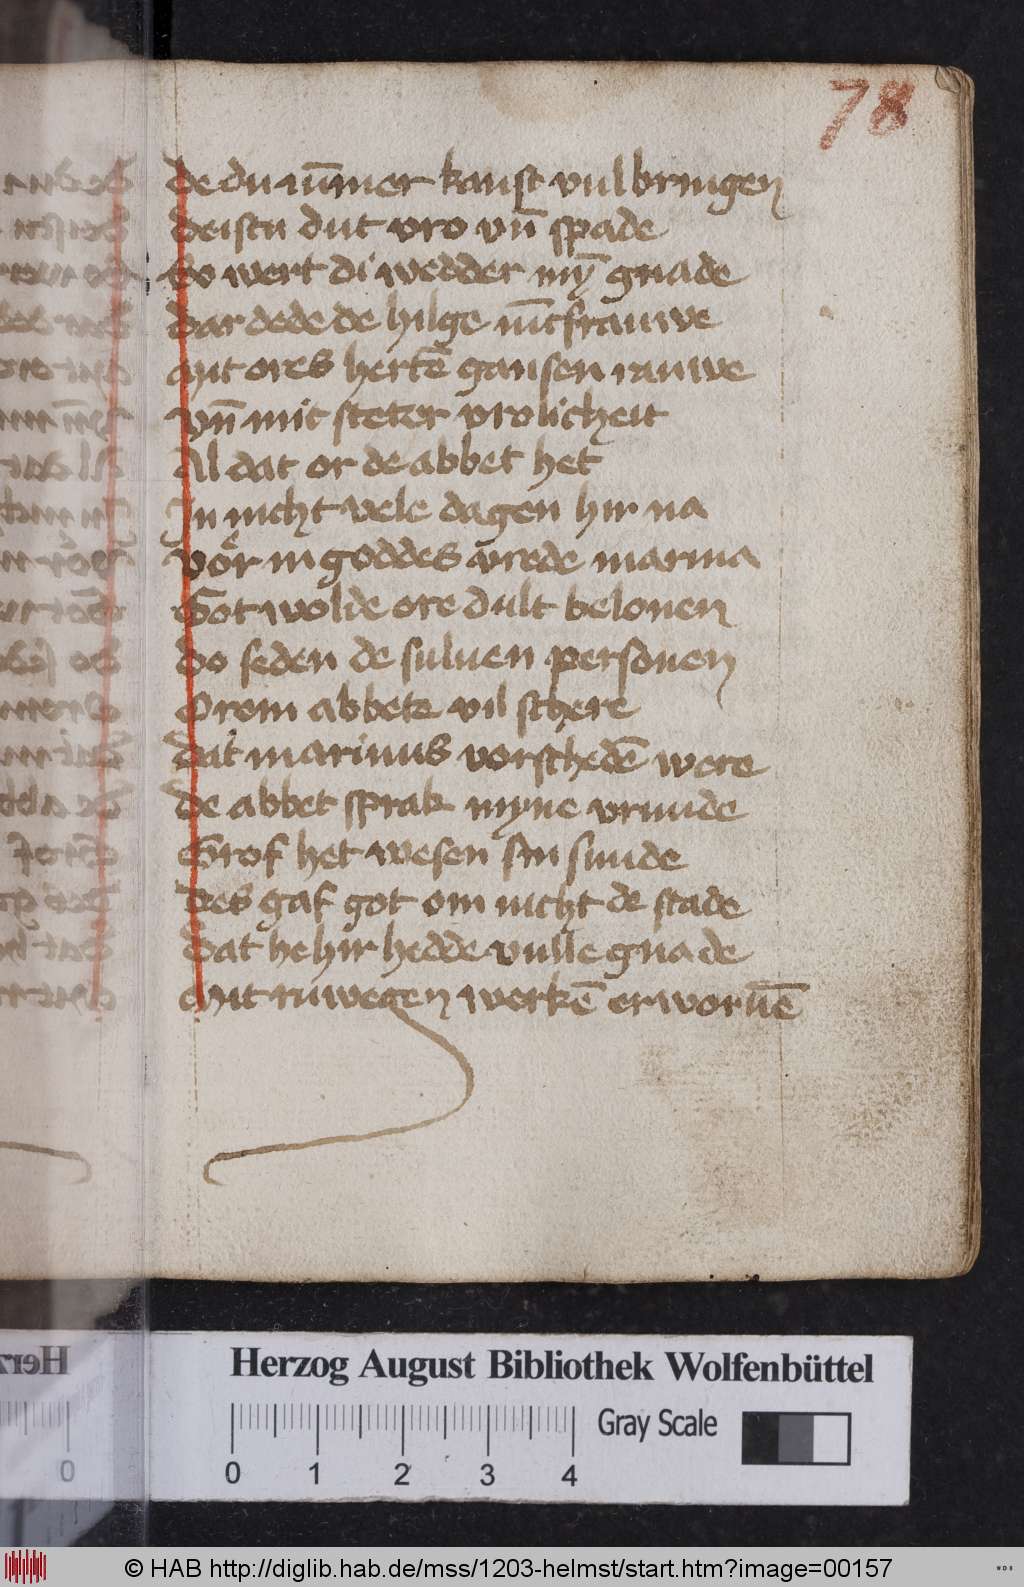 78
de du nūmer kanst vulbringen
deistu dut vro vn̄ spade
so wert di wedder mȳ gnade
dar dede de hilge iūcfrauwe
mit ores hertē gansen rauwe
vn̄ mit steter vrolicheit
Al dat or de abbet het
In nicht vele dagen hir na
vor in goddes vrede marina
Got wolde ore dult belonen
do seden de suluen personen
Orem abbete vil schere
dat marinus vorschedē were
de abbet sprak myne vrunde
Grof het wesen sin sunde
des gaf got om nicht de stade
dat he hir hedde vulle gnade
Mit ruwegen werkē erworuē
Herzog August Bibliothek Wolfenbüttel
Gray Scale
0 1 2 3 4
© HAB http://diglib.hab.de/mss/1203-helmst/start.htm?image=00157